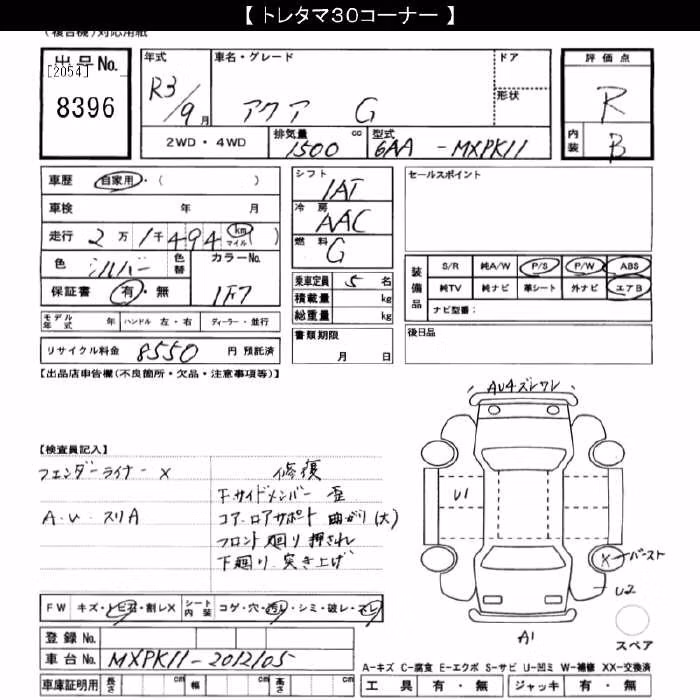 【 トレタマ30コーナー 】
(複合機)対応用紙
出品No.
[2054]
8396
年式
R3/9月
車名・グレード
アクア G
ドア
形状
評価点
R
内装
B
2WD・4WD
排気量 cc
1500
型式
6AA-MXPK11
車歴 自家用・( )
車検 年 月
走行 2万1千494 km マイル ( )
色 シルバー
色替
カラーNo.
1F7
保証書 有・無
モデル年式 年
ハンドル 左・右
ディーラー・並行
リサイクル料金 8550 円 預託済
シフト
IAT
冷房
AAC
燃料
G
乗車定員 5 名
積載量 kg
総重量 kg
書類期限
月 日
セールスポイント
装備品
S/R 純A/W P/S P/W ABS
純TV 純ナビ 革シート 外ナビ エアB
ナビ型番:
後日品
【出品店申告欄(不良箇所・欠品・注意事項等)】
【検査員記入】
フェンダーライナー ×
A.U.スリA
修復
F.サイドメンバー 歪
コア.ロアサポート 曲がり(大)
フロント廻り押され
下廻り.突き上げ
AU4ズレワレ
U1
×
バースト
U2
A1
スペア
FW キズ・トビ石・割レX
シート内装 コゲ・穴・汚レ・シミ・破レ・スレ
登録No.
車台No. MXPK11-2012105
車庫証明用 長さ cm 幅 cm 高さ cm
A-キズ C-腐食 E-エクボ S-サビ U-凹ミ W-補修 XX-交換済
工具 有・無 ジャッキ 有・無